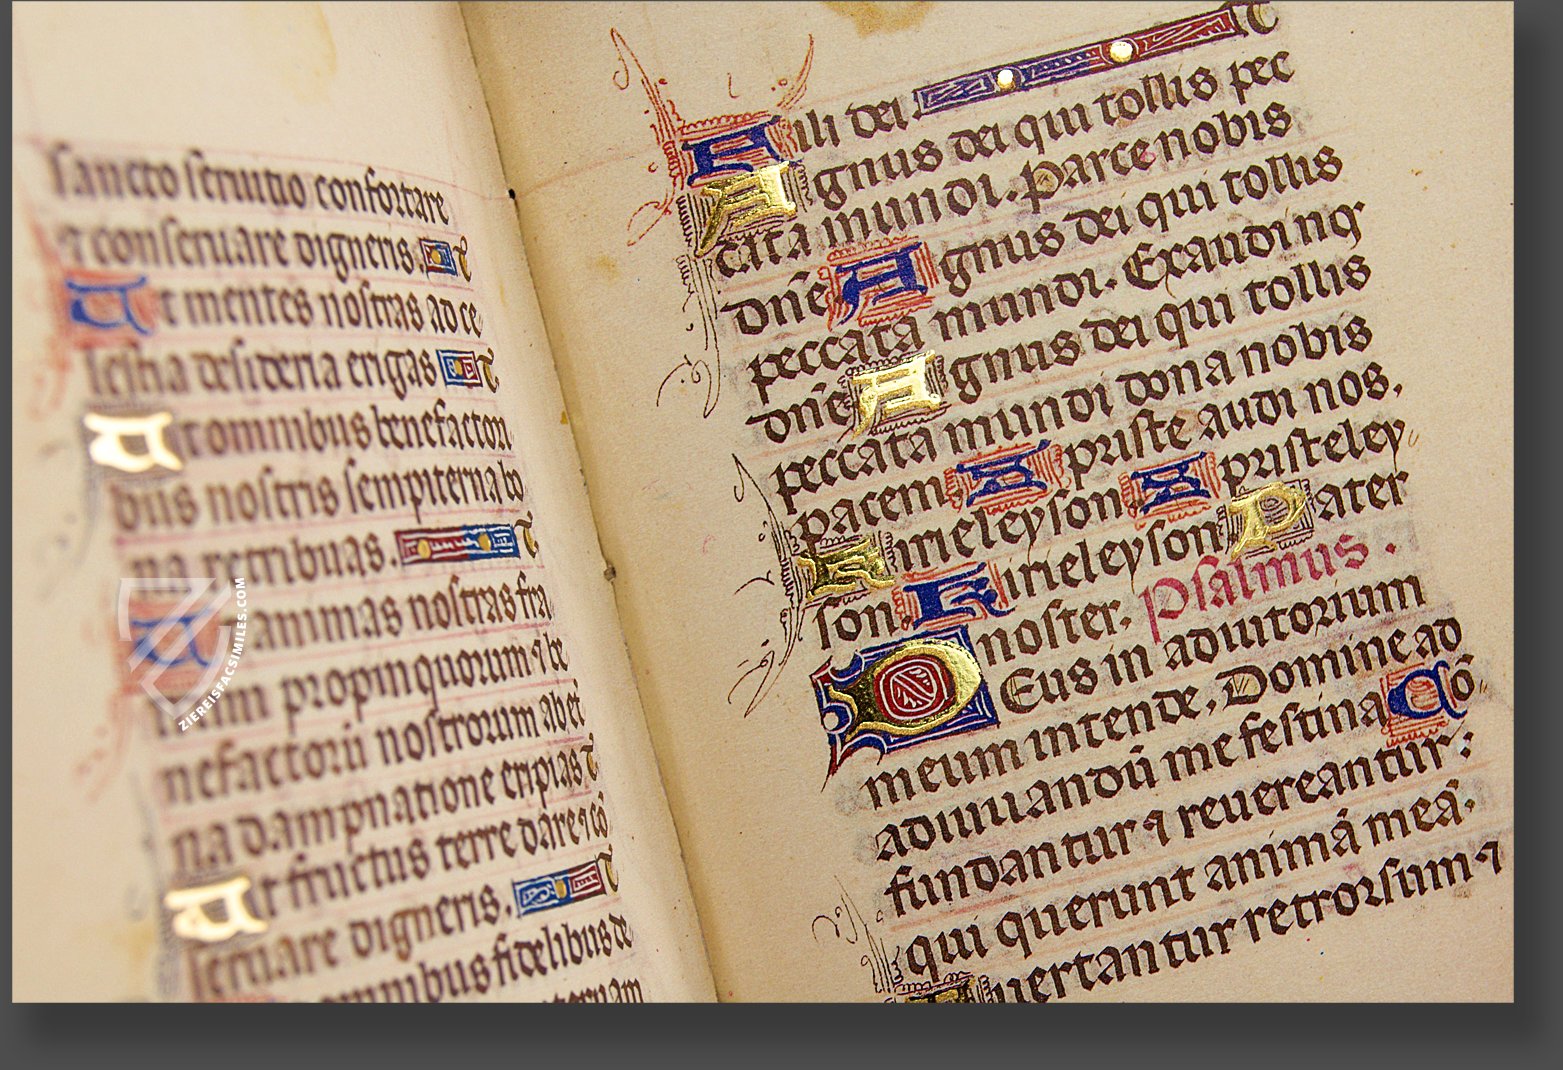 sancto seruitio confortare
et conseruare digneris. T
Ut mentes nostras ad ce
lestia desideria erigas T
Ut omnibus benefactori
bus nostris sempiterna bo
na retribuas. T
animas nostras fra
trum propinquorum ⁊ be
nefactorū nostrorum ab et
na dampnatione eripias T
Ut fructus terre dare ⁊ cō
seruare digneris. T
omnibus fidelibus de
ternam
Fili dei. T
Agnus dei qui tollis pec
cata mundi. Parce nobis
dn̄e Agnus dei qui tollis
peccata mundi. Exaudi nos
dn̄e Agnus dei qui tollis
peccata mundi dona nobis
pacem Xpriste audi nos.
Kirieleyson Xpristeley
son Kirieleyson Pater
noster. Psalmus.
DEus in adiutorium
meum intende. Domine ad
adiuuandū me festina Cō
fundantur ⁊ reuereantur:
qui querunt animā meā.
Auertantur retrorsum ⁊
ZIEREISFACSIMILES.COM